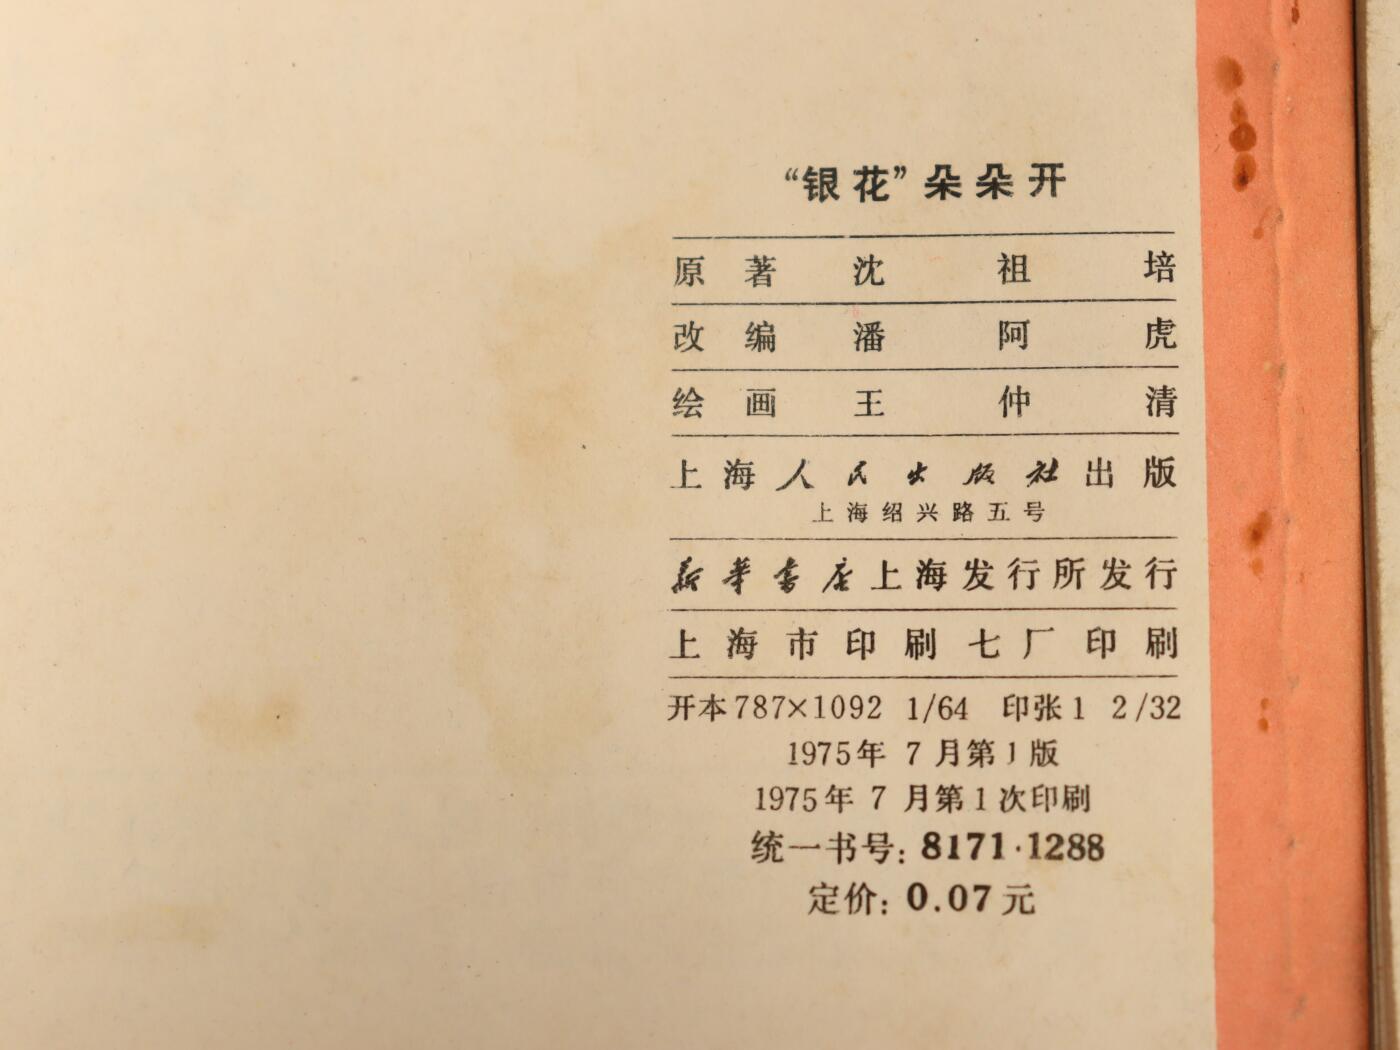 “银花”朵朵开
原著 沈祖培
改编 潘阿虎
绘画 王仲清
上海人民出版社出版
上海绍兴路五号
新华书店上海发行所发行
上海市印刷七厂印刷
开本 787×1092 1/64 印张 1 2/32
1975年 7 月第 1 版
1975年 7 月第 1 次印刷
统一书号: 8171·1288
定价: 0.07 元